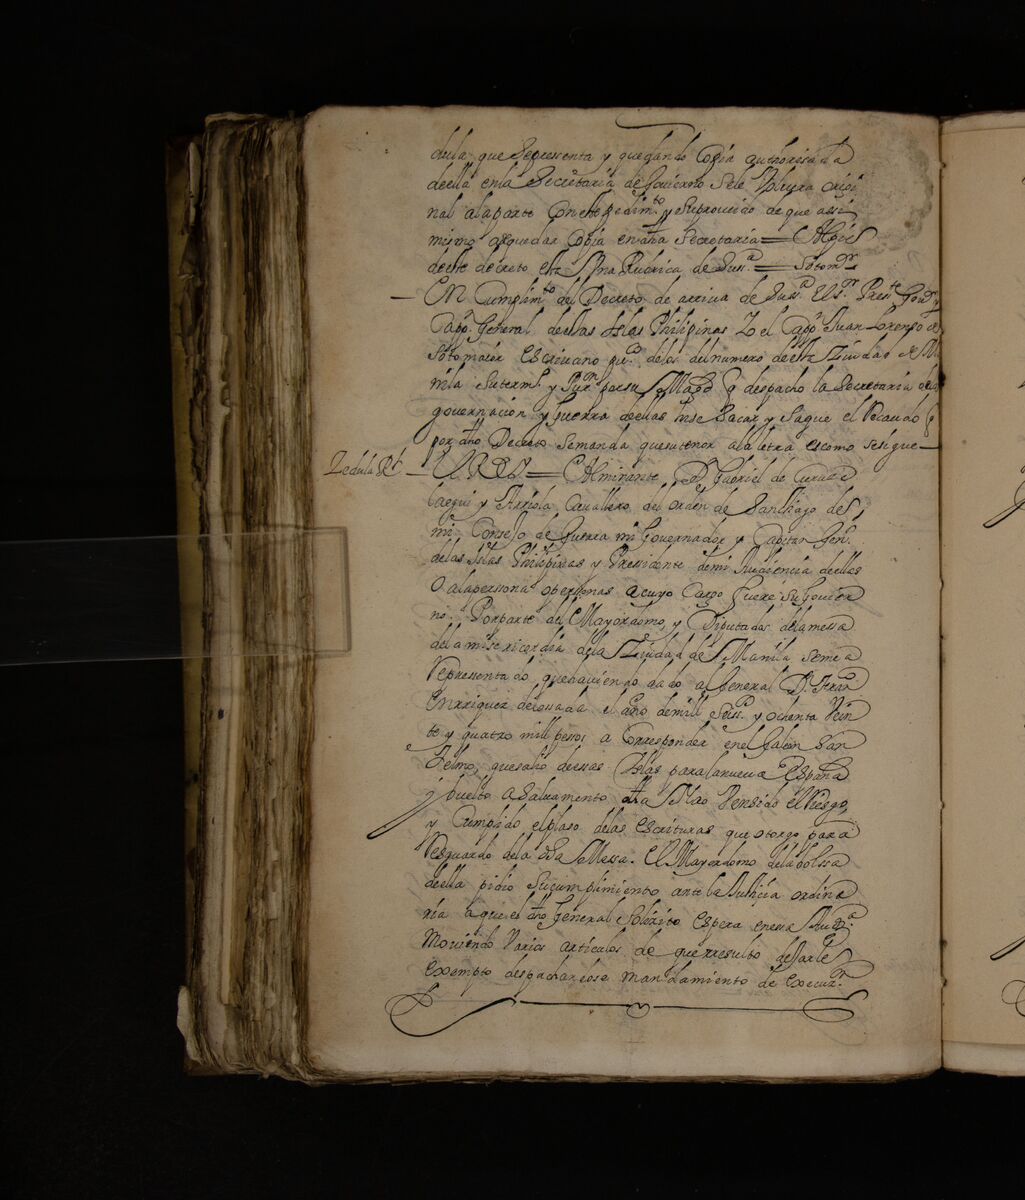 dula que Representa y quedando Copia authorisada
deella enla Secretaria de Govierno Sele Volvera origi
nal alaparte Coneste pedim.to y suproveido de que assi
mismo aquedar Copia en dha Secretaria =
deeste decreto esta Una Rubrica de Suss.a = Sotom.or
En Cumplim.to del Decreto de arriva de Suss.a El S.r Press.te Gov.or y
Capp.n General deestas Islas Philipinas Yo el Capp.n Juan Lorenso de
Sotomaior escrivano pu.co delos del numero deesta Ziudad de Ma
nila Sutermi.o y Jur.on porsu Mag.d q despacho la Secretaria dela
governacion y guerra deestas Hise Sacar y Saque el Recaudo q
por dho Decreto Semanda quesutenor ala letra escomo sesigue
Zedula R.l — EL REY = Almirante D.n Gabriel de Curuze
laegui y Arriola Cavallero del orden de Santhiago de
mi Consejo de Guerra mi Governador y Capitan Gen.l
delas Islas Philipinas y Pressidente demi Audiencia deellas
O alapersona opersonas acuyo Cargo fuere Sugovier
no. Porparte del Mayordomo, y Diputados delamessa
delamisericordia dela Ziudad de Manila Seme a
Representado quehaviendo dado al General D.n Fran.co
Enrriquez delossada el año demill Seiss.os y ochenta Vein
te y quatro mill pesos a Corresponder enel Galeon San
Telmo, quesalio deessas Islas paralanueva España
y buelto a Salvamento dha Nao Vensido el Riesgo,
y Cumplido elplaso delas escrituras que otorgo para
Resguardo dela dha Messa. El Mayordomo delabolssa
deella pidio Sucumplimiento ante la Justicia ordina
ria aque el dho General Solisito espera eneessa Aud.a
Moviendo Varios articulos de que rresulto
exempto despachandose mandamiento de execuz.n